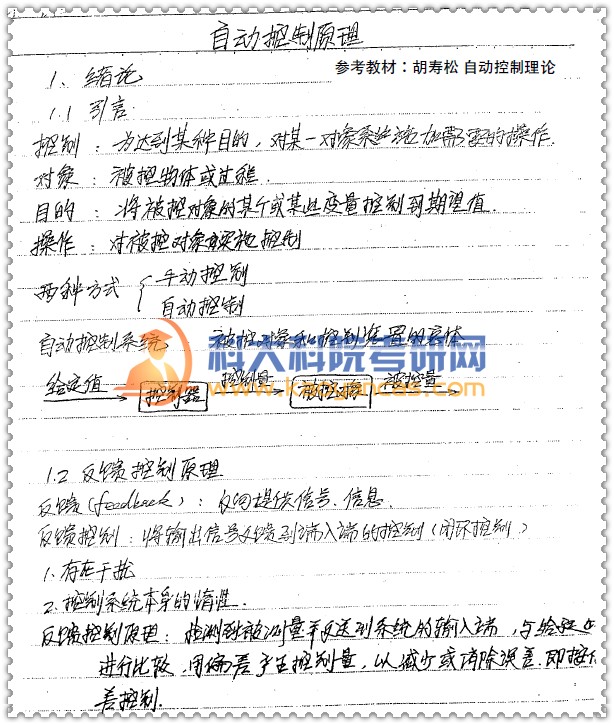 自动控制原理
参考教材：胡寿松 自动控制理论
1、绪论
1.1 引言
控制：为达到某种目的，对某一对象系统施加需要的操作.
对象：被控物体或过程.
目的：将被控对象的某个或某些变量控制到期望值.
操作：对被控对象实施控制
两种方式 { 手动控制
自动控制
自动控制系统：被控对象和控制装置的总体
科大科院考研网
给定值 控制器 控制量 被控对象 被控量
1.2 反馈控制原理
反馈(feedback)：反向提供信号.信息.
反馈控制：将输出信号反馈到输入端的控制(闭环控制)
1.存在干扰
2.控制系统本身的惰性.
反馈控制原理：检测到被测量并反送到系统的输入端，与给定
进行比较，用偏差产生控制量，以减少或消除误差.即按
差控制.